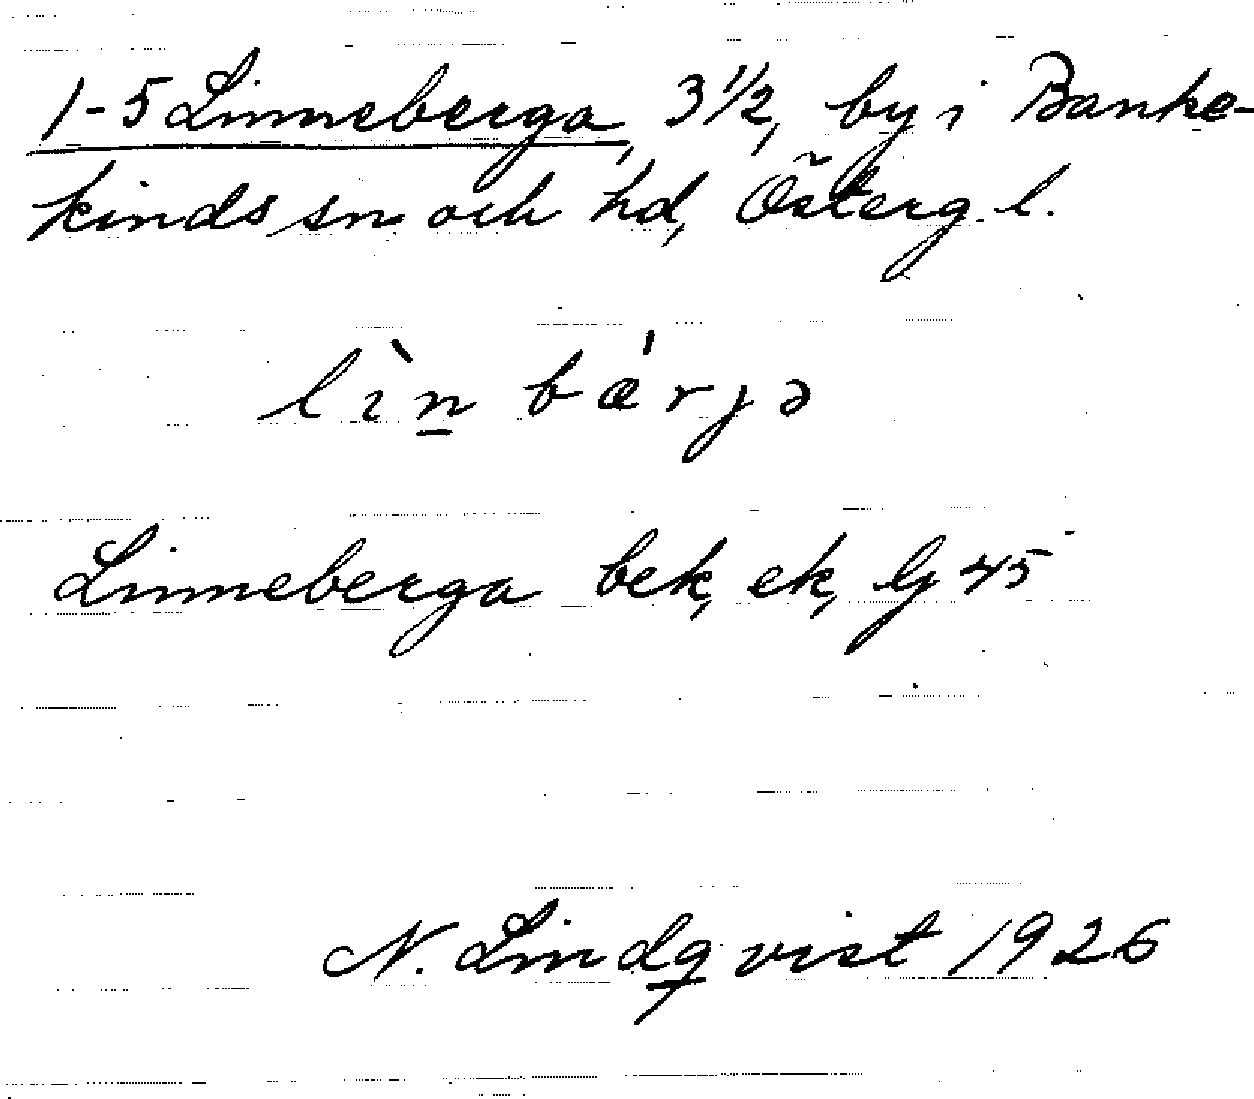 1-5 Linneberga, 3 1/2, by i Banke-
kinds sn och hd, Österg. l.
lìn bǽrjə
Linneberga bek, ek, Gj 45
N. Lindqvist 1926